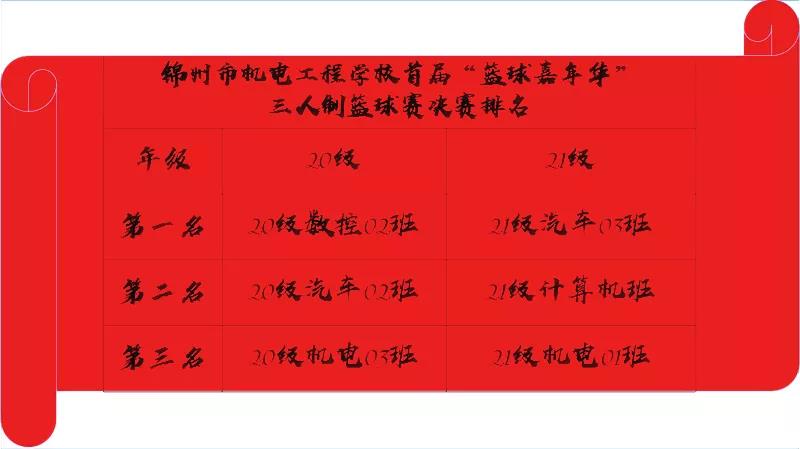 锦州市机电工程学校首届“篮球嘉年华”
三人制篮球赛决赛排名
年级 20级 21级
第一名 20级数控02班 21级汽车03班
第二名 20级汽车02班 21级计算机班
第三名 20级机电03班 21级机电01班